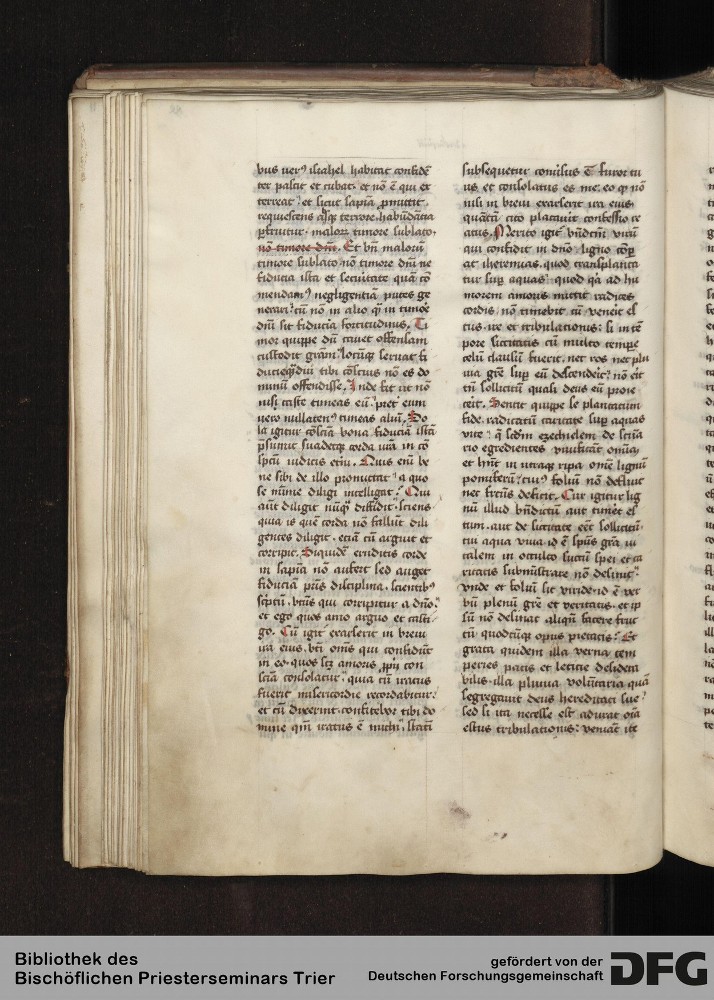 bus ver⁹ israhel habitat confidē
ter pascit et cubat· et nō ē qui ex
terreat? et sicut sapīa ꝓmittit·
requiescens absq̨ terrore habūdātia
ꝑfruitur· malorꝝ timore sublato·
nō timore dn̄i. Et bn̄ malorū
timore sublato nō timore dn̄i ne
fiducia ista et securitate quā cō
mendam⁹ negligentiā putes ge
nerari? cū nō in alio q̄ in timore
dn̄i sit fiducia fortitudinis. Ti
mor quippe dū cavet offensam
custodit grām? locūq̨ servat fi
ducie q̄diu tibi cōscius nō es do
minū offendisse. Inde fit ut nō
nisi caste timeas eū? p̄ter eum
vero nullaten⁹ timeas aliū. So
la igitur cōscīa bona fiduciā istā
p̄sumit suadetq̨ corda vrā in cō
spcū iudicis etiā. Quis eni be
ne sibi de illo promittat? a quo
se minime diligi intelligat? Qui
aut diligit nūq̄ diffidit· sciens
quia is quē corda nō fallūt dili
gentes diligit· etiā cū arguit et
corripit. Siquidē eruditis corde
in sapīa nō aufert sed auget
fiduciā pr̄is disciplina· scientib⁹
scptū· btūs qui corripitur a dn̄o?
et ego quos amo arguo et casti
go. Cū igit̄ exarserit in brevi
ira eius· bti om̄s qui confidūt
in eo· quos scꝫ amoris ꝓpij con
scīa consolatur? quia cū iratus
fuerit misericordie recordabitur?
et cū dixerint· confitebor tibi do
mine qm̄ iratus ē michi? statī
subsequetur cōuersus ē furor tu
us et consolatus es me· eo q̨ nō
nisi in brevi exarserit ira eius·
quātū cito placavit confessio re
atus. Merito igit̄ bn̄dictū virū
qui confidit in dn̄o· ligno cōp
at iheremias· quod transplanta
tur suꝑ aquas? quod q̄a ad hu
morem amoris mittit radices
cordis nō timebit cū venerit es
tus· ire et tribulationis: si in tē
pore siccitatis cū multo tempe
celū clausū fuerit· nec ros nec plu
via grē suꝑ eū descenderit? nō erit
tn̄ sollicitū quasi deus eū proie
cerit. Sentit quippe se plantatum
fide· radicatū caritate suꝑ aquas
vite? q̄ scdm ezechielem de sctūa
rio egredientes vivificāt omīa·
et hn̄t in utraq̨ ripa om̄e lignū
pomiferū? cui⁹ foliū nō defluit
nec fruct⁹ deficit. Cur igitur lig
nū illud bn̄dictū aut timeret es
tum· aut de siccitate eēt sollicitū·
cui aqua viva id ē spūs grā vi
talem in occulto succū spei et ca
ritatis subministrare nō desinit?
unde et foliū sit viride· id ē ver
bū plenū grē et veritatis· et ip
sū nō desinat aliqn̄ facere fruc
tū quodcūq̨ opus pietatis? Et
grata quidem illa verna tem
peries pacis et leticie desidera
bilis· illa pluvia volūtaria quā
segregavit deus hereditati sue?
sed si ita necesse est adurat oīa
estus tribulationis: veniāt ire
Bibliothek des
Bischöflichen Priesterseminars Trier
gefördert von der
Deutschen Forschungsgemeinschaft
DFG